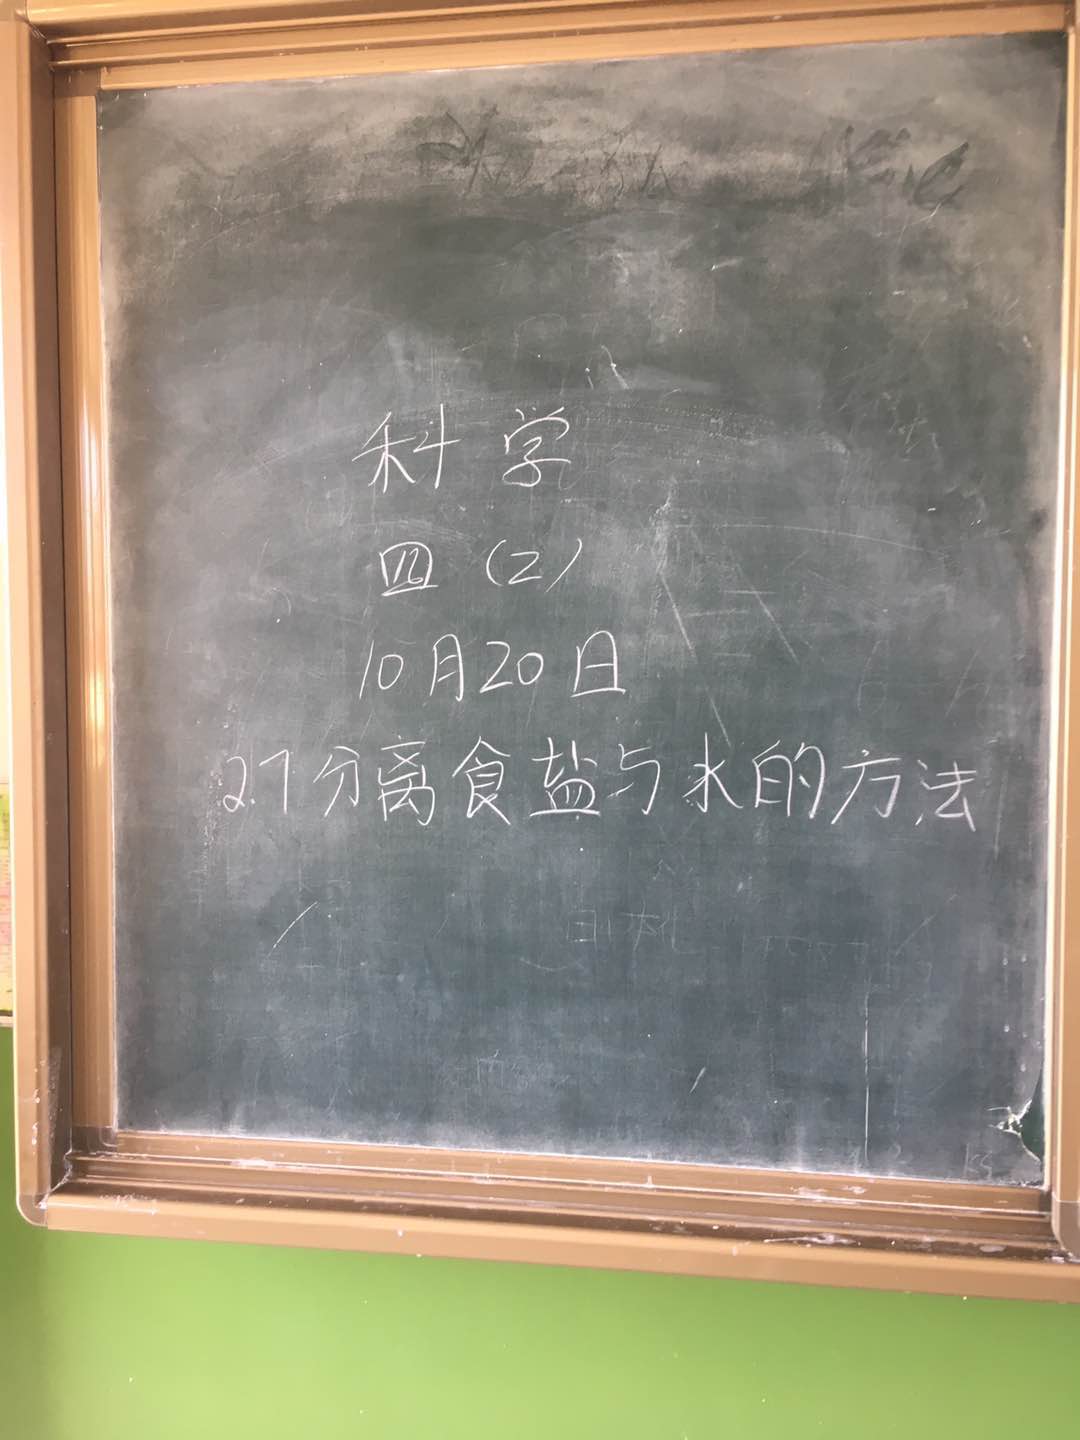 科学
四(2)
10月20日
2.7分离食盐与水的方法